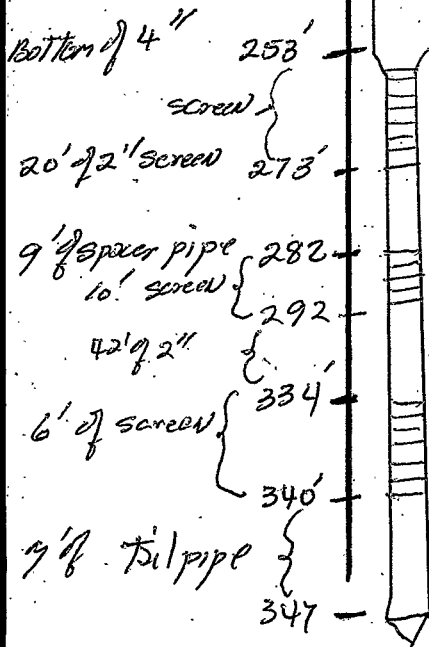 Bottom of 4" 253'
screen
20' of 2" screen 273'
9' of spacer pipe 282
10' screen
292
42' of 2"
334'
6' of screen
340'
7' of Tail pipe
347